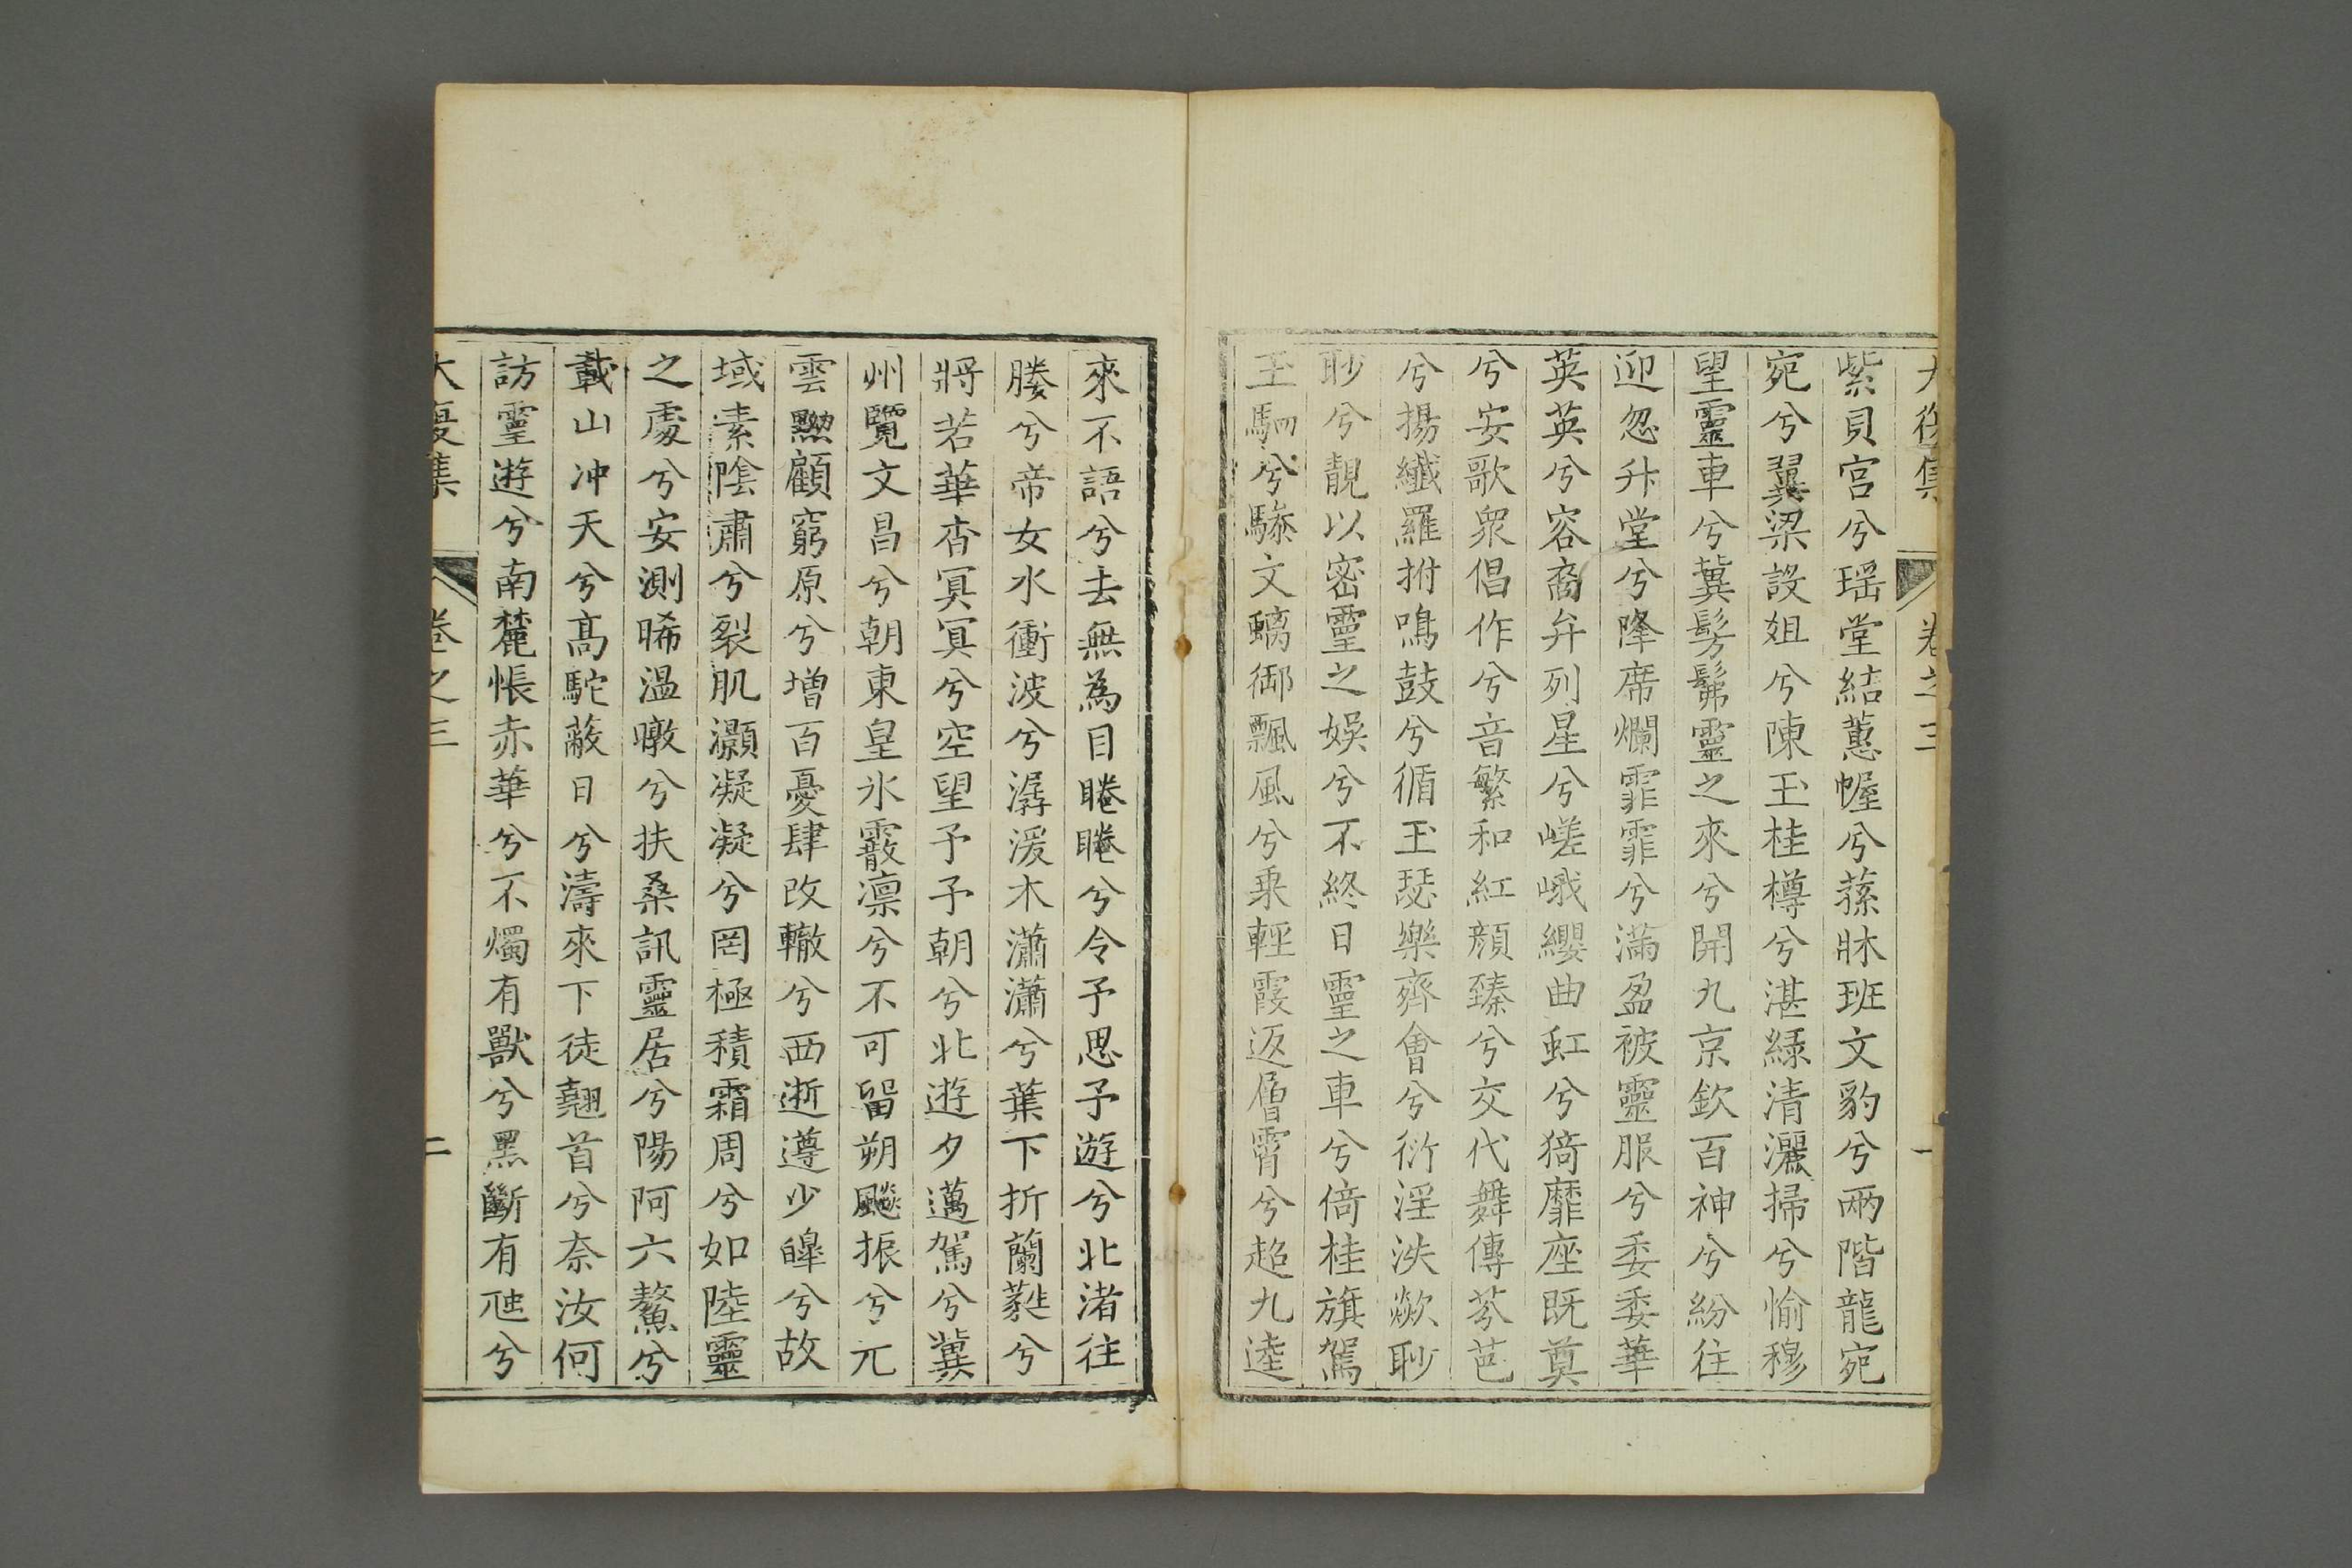 大復集 卷之三 一
紫貝宮兮瑶堂結蕙幄兮蓀牀班文豹兮兩階龍宛
宛兮翼梁設俎兮陳玉桂樽兮湛緑清灑掃兮愉穆
望靈車兮冀髣髴靈之來兮開九京欽百神兮紛往
迎忽升堂兮降席爛霏霏兮滿盈被靈服兮委委華
英英兮容裔弁列星兮嵯峨纓曲虹兮猗靡座既奠
兮安歌眾倡作兮音繁和紅顔臻兮交代舞傳芩芭
兮揚纖羅拊鳴鼓兮循玉瑟樂齊會兮衍淫泆歘眇
眇兮靚以密靈之娛兮不終日靈之車兮倚桂旗駕
玉駟兮驂文螭御飄風兮乘輕霞返層霄兮超九逵
來不語兮去無為目睠睠兮令予思予遊兮北渚往
媵兮帝女水衝波兮潺湲木瀟瀟兮葉下折蘭蕤兮
將若華杳冥冥兮空望予予朝兮北遊夕邁駕兮冀
州覽文昌兮朝東皇氷霰凛兮不可留朔飈振兮元
雲黝顧窮原兮增百憂肆改轍兮西逝遵少皞兮故
域素陰肅兮裂肌灝凝凝兮罔極積霜周兮如陸靈
之處兮安測晞温暾兮扶桑訊靈居兮陽阿六鰲兮
載山冲天兮髙駝蔽日兮濤來下徒翹首兮奈汝何
訪靈遊兮南麓悵赤華兮不燭有獸兮黑斷有虺兮
大復集 卷之三 二